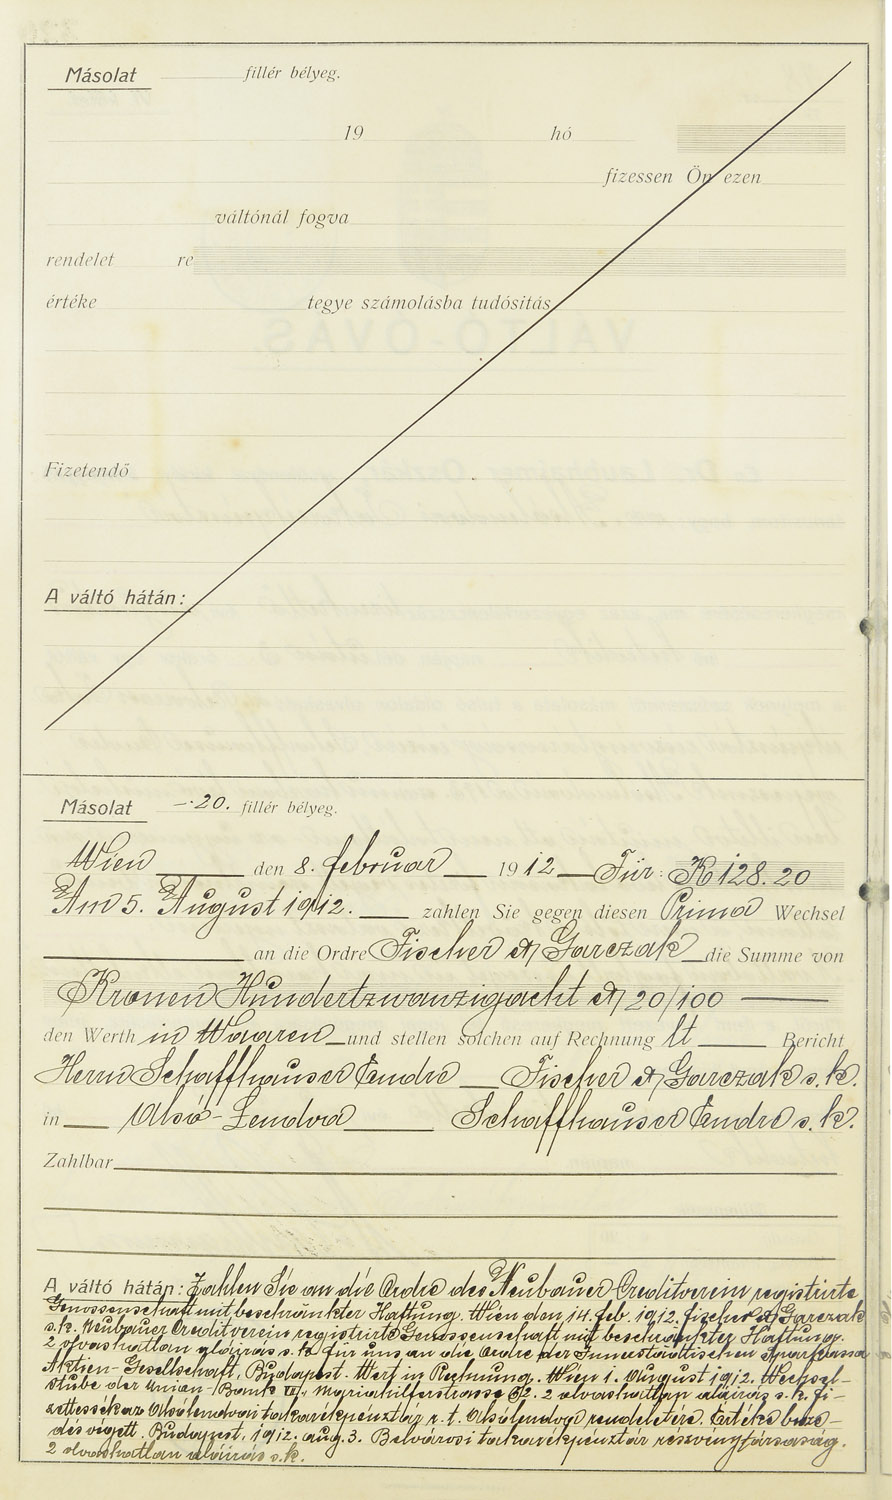 Másolat fillér bélyeg.
19 hó
fizessen Ön ezen
váltónál fogva
rendelet re
értéke tegye számolásba tudósitás
Fizetendő
A váltó hátán:
Másolat —·20. fillér bélyeg.
Wien den 8. februar 1912 — Für: K 128.20
Am 5. August 1912. zahlen Sie gegen diesen Prima Wechsel
an die Ordre Fischer & Garczak die Summe von
Kronen Hundertzwanzigacht & 20/100
den Werth in Waaren und stellen solchen auf Rechnung lt Bericht
Herrn Schaffhauser Endre — Fischer & Garczak s. k.
in Alsó-Lendva Schaffhauser Endre s. k.
Zahlbar
A váltó hátán: Zahlen Sie an die Ordre des Neubauer Creditverein registrirte
Genossenschaft mit beschränkter Haftung. Wien den 14. feb. 1912. Fischer & Garczak
s. k. Neubauer Creditverein registrirte Genossenschaft mit beschränkter Haftung.
2 olvashatlan aláirás s. k. für uns an die Ordre der Innerstädtischen Sparkassa
Aktien-Gesellschaft, Budapest. Wert in Rechnung. Wien 1. August 1912. Wechsel-
stube der Union-Bank VII, Mariahilferstrasse 2. olvashatlan aláirás s. k. Fi-
zettessék az Alsólendvai takarékpénztár r. t. Alsólendva rendeletére. Értéke besze-
dés végett. Budapest, 1912. aug. 3. Belvárosi takarékpénztár részvénytársaság.
2 olvashatlan aláirás s. k.